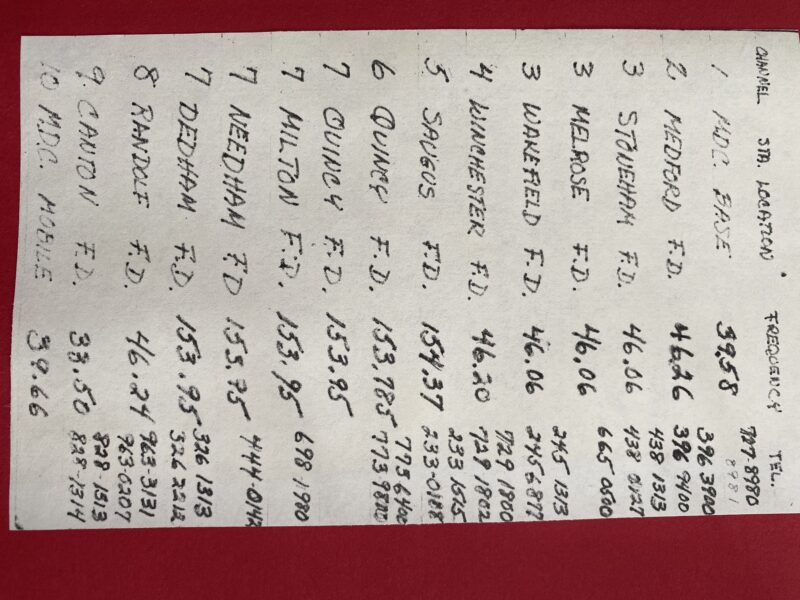 CHANNEL STA. LOCATION FREQUENCY TEL.
727-8980
8981
1 MDC. BASE 39.58
396 3900
2 MEDFORD F.D. 46.26 396 9400
438 1313
3 STONEHAM F.D. 46.06 438 0127
3 MELROSE F.D. 46.06 665 0500
245 1313
3 WAKEFIELD F.D. 46.06 245 6877
729 1800
4 WINCHESTER F.D. 46.20 729 1802
233 1525
5 SAUGUS F.D. 154.37 233-0188
773 6400
6 QUINCY F.D. 153.785
7 QUINCY F.D. 153.95
7 MILTON F.D. 153.95 698 1980
7 NEEDHAM F.D 153.95 444 0142
326 1313
7 DEDHAM F.D. 153.95 326 2212
963-3131
8 RANDOLF F.D. 46.24 963 0207
828-1313
9 CANTON F.D. 33.50 828-1314
10 M.D.C. MOBILE 39.66